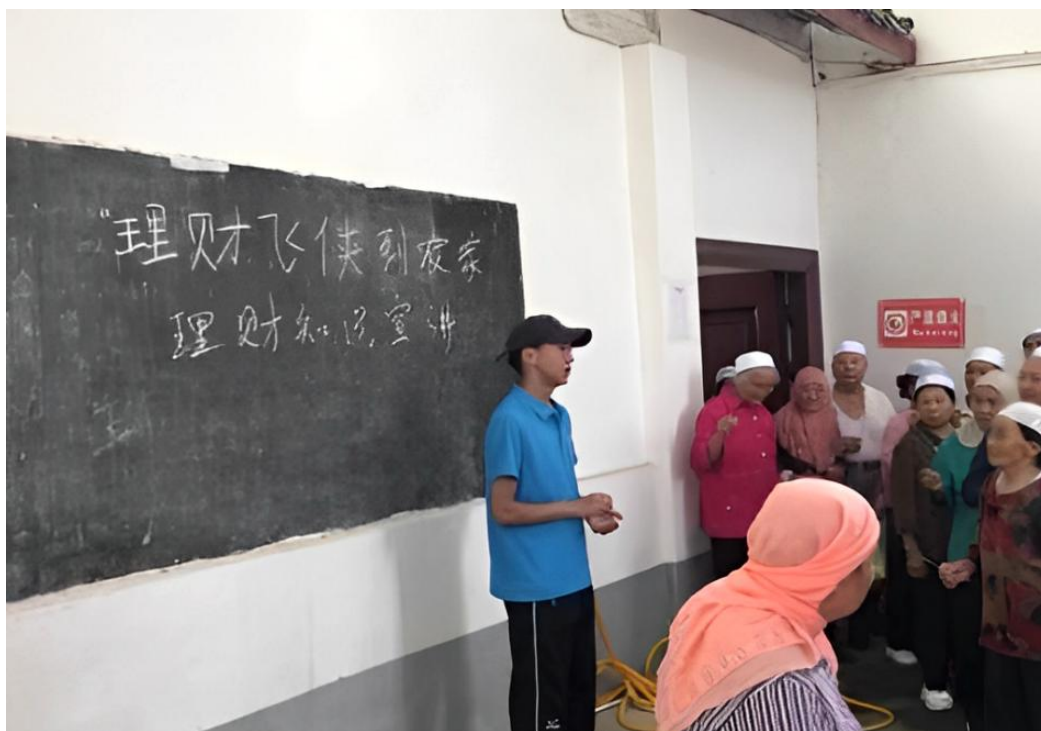 "理财飞侠到农家
理财知识宣讲
严禁